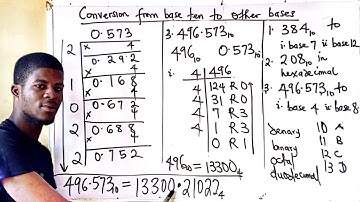 Conversion from base ten to other bases
0.573
× 4
2 0.292
× 4
1 0.168
× 4
0 0.672
× 4
2 0.688
× 4
2 0.752
3. 496.573₁₀
496₁₀ 0.573₁₀
i. 4 496
4 124 R 0
4 31 R 0
4 7 R 3
4 1 R 3
0 R 1
496₁₀ = 13300₄
496.573₁₀ = 13300.21022₄
1. 384₁₀ to
i base 7 ii base 12
2. 208₁₀ in
hexadecimal
3. 496.573₁₀ to
i base 4 ii base 8
denary 10 A
binary 11 B
octal 12 C
duodecimal 13 D